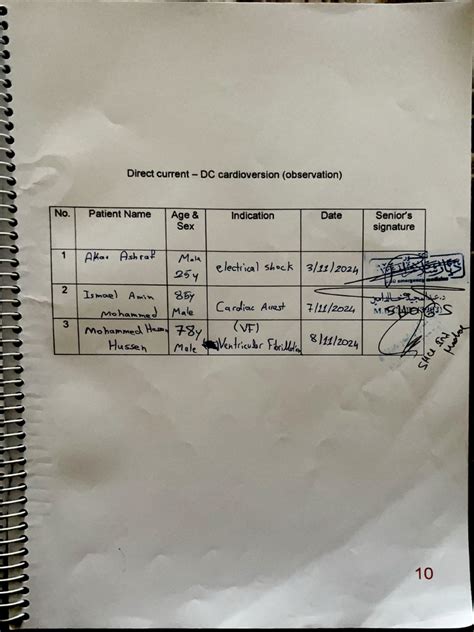 Direct current – DC cardioversion (observation)
No. Patient Name Age & Sex Indication Date Senior's signature
1 Akar Ashraf Male 25y electrical shock 3/11/2024
2 Ismael Amin Mohammed 85y Male Cardiac Arrest 7/11/2024
3 Mohammed Hussen 78y Male (VF) Ventricular Fibrillation 8/11/2024
10